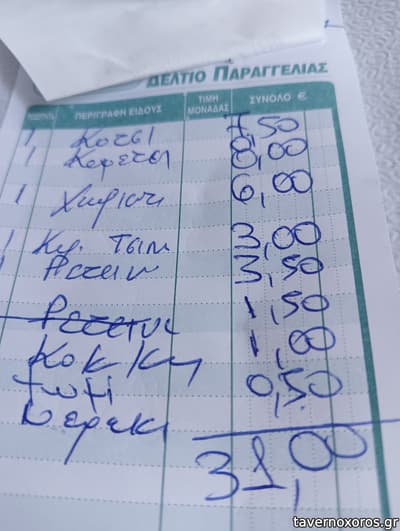 ΔΕΛΤΙΟ ΠΑΡΑΓΓΕΛΙΑΣ
ΠΕΡΙΓΡΑΦΗ ΕΙΔΟΥΣ ΤΙΜΗ ΜΟΝΑΔΟΣ ΣΥΝΟΛΟ €
1 Κοτσι 7,50
1 8,00
1 Χωριατ 6,00
1 3,00
3,50
1,50
Κοκ/κι 1,00
Ψωμι 0,50
Νερακι
31,00
tavernoxoros.gr